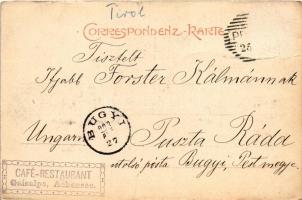 Tirol
CORRESPONDENZ-KARTE
Tisztelt
Ifjabb Forster Kálmánnak
BUGYI
27
Ungarn Puszta Ráda
utolsó posta Bugyi, Pest megye.
CAFÉ-RESTAURANT
Gaisalpe, Achensee.